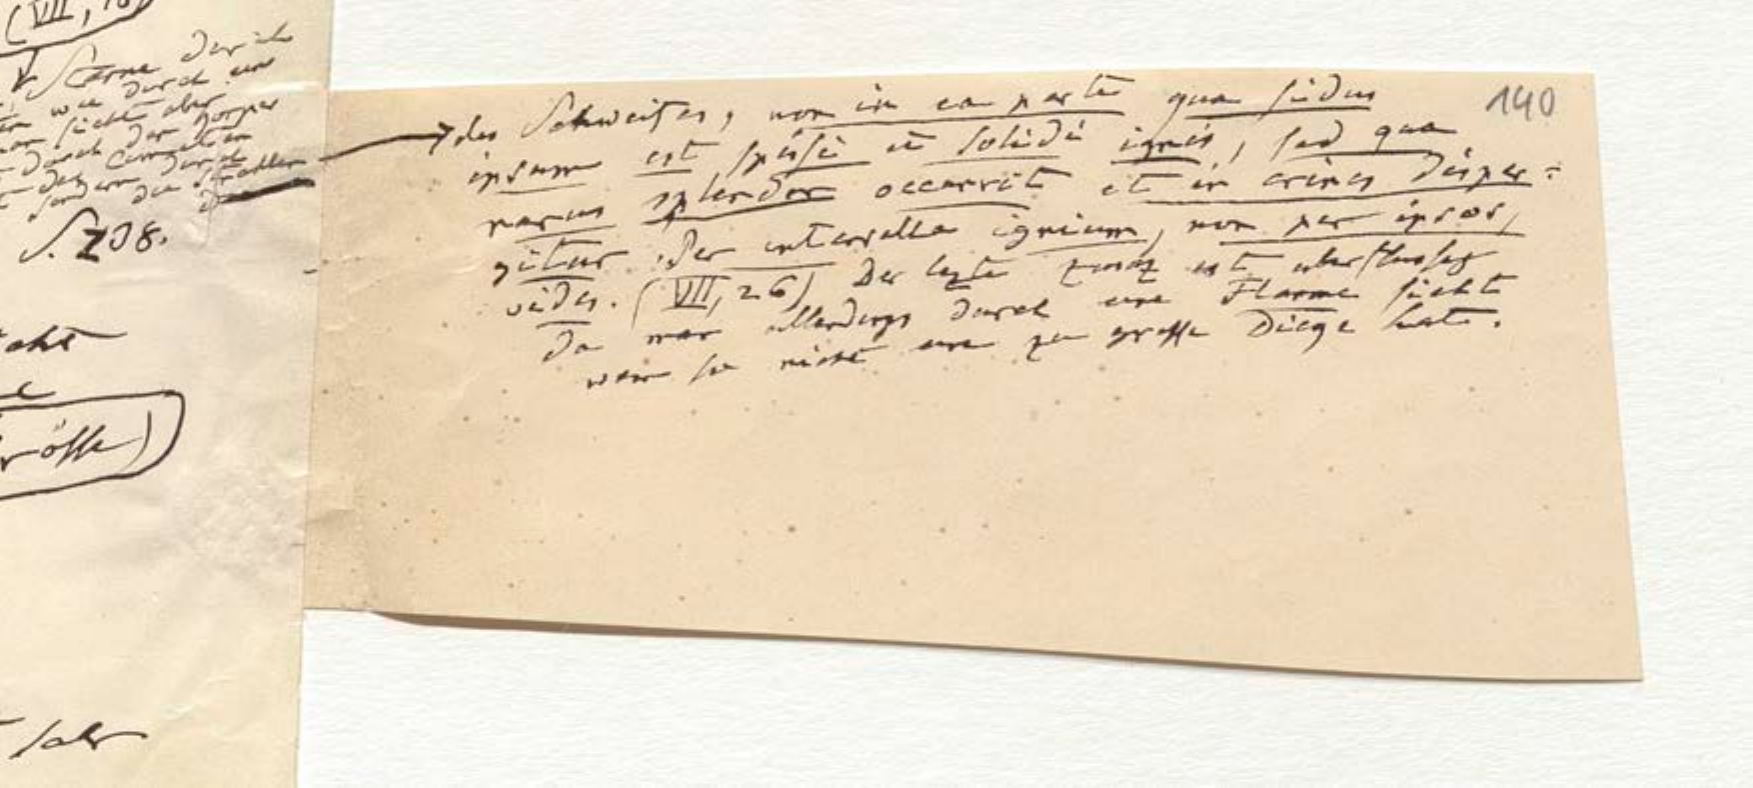 (VII,
Sterne durch
wie durch eine
man sieht aber
durch den Körper
des Cometen
sondern durch
die Strahlen
S. 208.
röſſe)
140
des Schweifes, non in ea parte qua sidus
ipsum est spissi et solidi ignis, sed qua
rarus splendor occurrit et in crines disper=
gitur. Per intervalla ignium, non per ipsos,
vides. (VII, 26) Der lezte Zusaz ist überflussig
da man allerdings durch eine Flamme sieht
wenn sie nicht eine zu grosse Dicge hat.